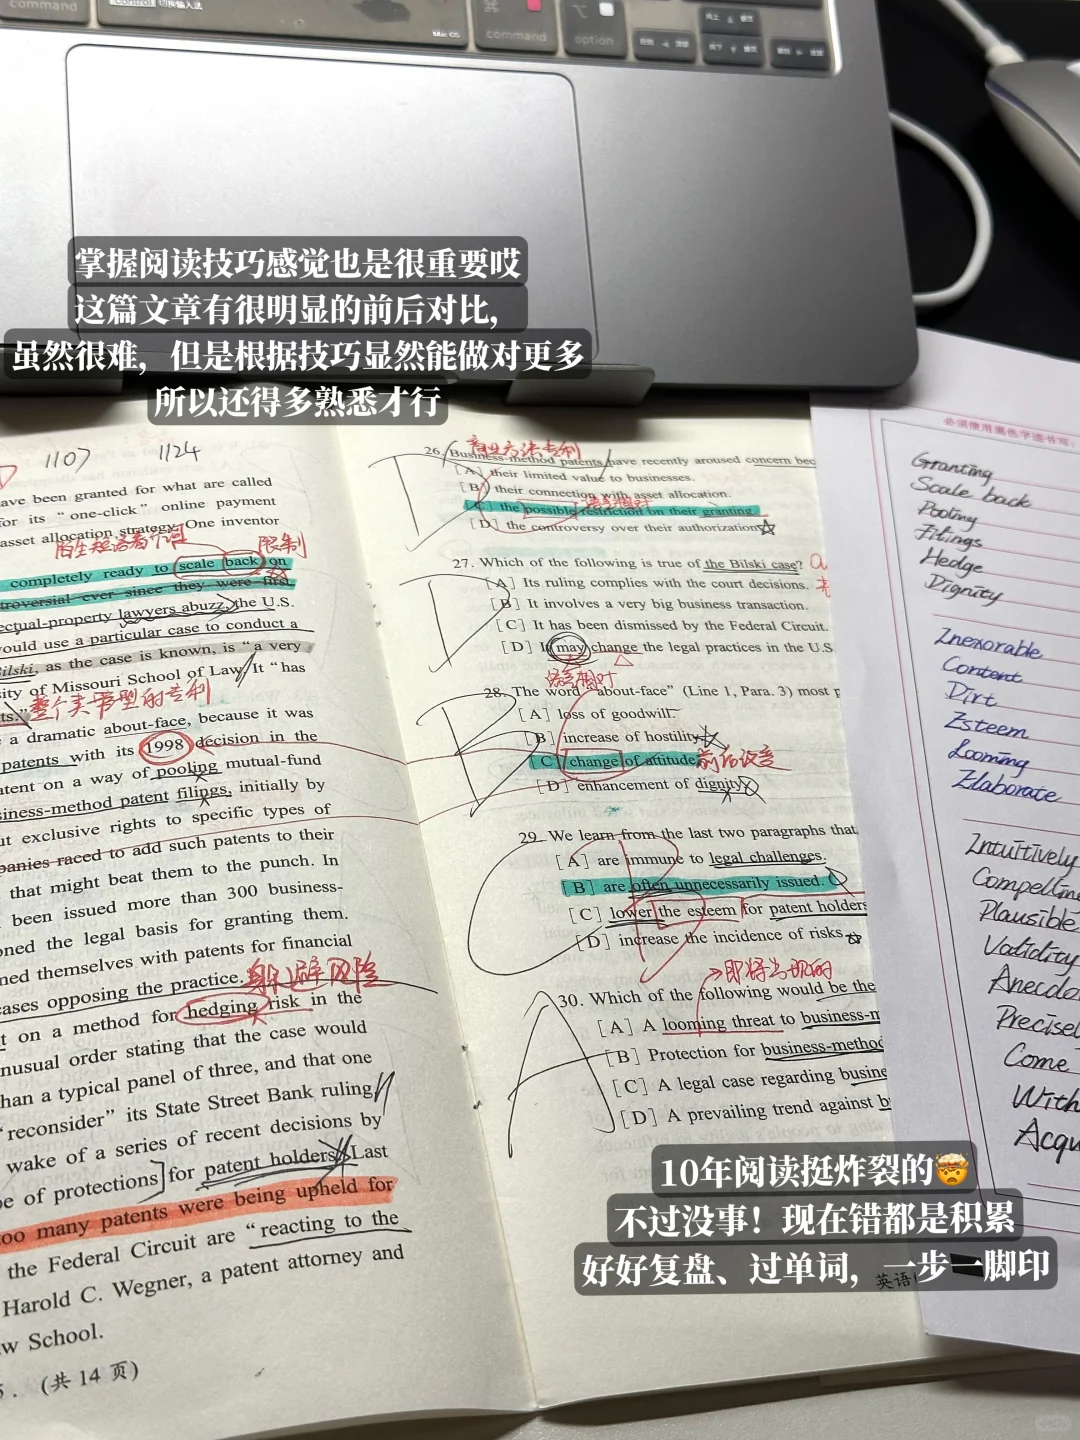 command
control
切换输入法
command
option
掌握阅读技巧感觉也是很重要哎
这篇文章有很明显的前后对比，
虽然很难，但是根据技巧显然能做对更多
所以还得多熟悉才行
1107 1124
ave been granted for what are called
for its "one-click" online payment
asset allocation strategy. One inventor
限制
completely ready to scale back on
troversial ever since they were first
ectual-property lawyers abuzz, the U.S.
ould use a particular case to conduct a
Bilski, as the case is known, is "a very
sity of Missouri School of Law. It "has
ts."
整个类型的专利
a dramatic about-face, because it was
patents with its 1998 decision in the
atent on a way of pooling mutual-fund
siness-method patent filings, initially by
ut exclusive rights to specific types of
panies raced to add such patents to their
that might beat them to the punch. In
been issued more than 300 business-
oned the legal basis for granting them.
ned themselves with patents for financial
cases opposing the practice.
避风险
t on a method for hedging risk in the
nusual order stating that the case would
han a typical panel of three, and that one
"reconsider" its State Street Bank ruling
wake of a series of recent decisions by
pe of protections] for patent holders. Last
too many patents were being upheld for
the Federal Circuit are "reacting to the
Harold C. Wegner, a patent attorney and
w School.
5. (共 14 页)
商业方法专利
26. Business-method patents have recently aroused concern bec
[A] their limited value to businesses.
[B] their connection with asset allocation.
[C] the possible restriction on their granting.
[D] the controversy over their authorization.
D
27. Which of the following is true of the Bilski case?
[A] Its ruling complies with the court decisions.
[B] It involves a very big business transaction.
[C] It has been dismissed by the Federal Circuit.
[D] It may change the legal practices in the U.S.
D
28. The word "about-face" (Line 1, Para. 3) most p
[A] loss of goodwill.
[B] increase of hostility.
[C] change of attitude.
[D] enhancement of dignity.
B
29. We learn from the last two paragraphs that
[A] are immune to legal challenges.
[B] are often unnecessarily issued.
[C] lower the esteem for patent holders
[D] increase the incidence of risks.
C
B
30. Which of the following would be the
[A] A looming threat to business-m
[B] Protection for business-method
[C] A legal case regarding busine
[D] A prevailing trend against b
A
必须使用黑色字迹书写
Granting
Scale back
Pooling
Filings
Hedge
Dignity
Inexorable
Content
Dirt
Esteem
Looming
Elaborate
Intuitively
Compelling
Plausible
Validity
Anecdo
Precisel
Come
With
Acqu
10年阅读挺炸裂的🤯
不过没事！现在错都是积累
好好复盘、过单词，一步一脚印
英语